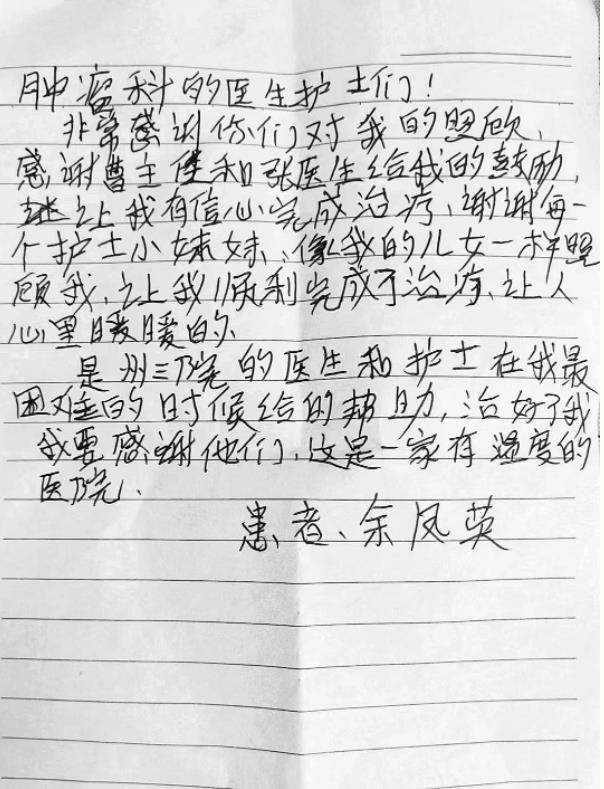 肿瘤科的医生护士们!
非常感谢你们对我的照顾、
感谢曹主任和张医生给我的鼓励,
让我有信心完成治疗、谢谢每一
个护士小妹妹、像我的儿女一样照
顾我、让我顺利完成了治疗、让人
心里暖暖的、
是州三院的医生和护士在我最
困难的时候给的帮助,治好了我
我要感谢他们、这是一家有温度的
医院、
患者、余凤英